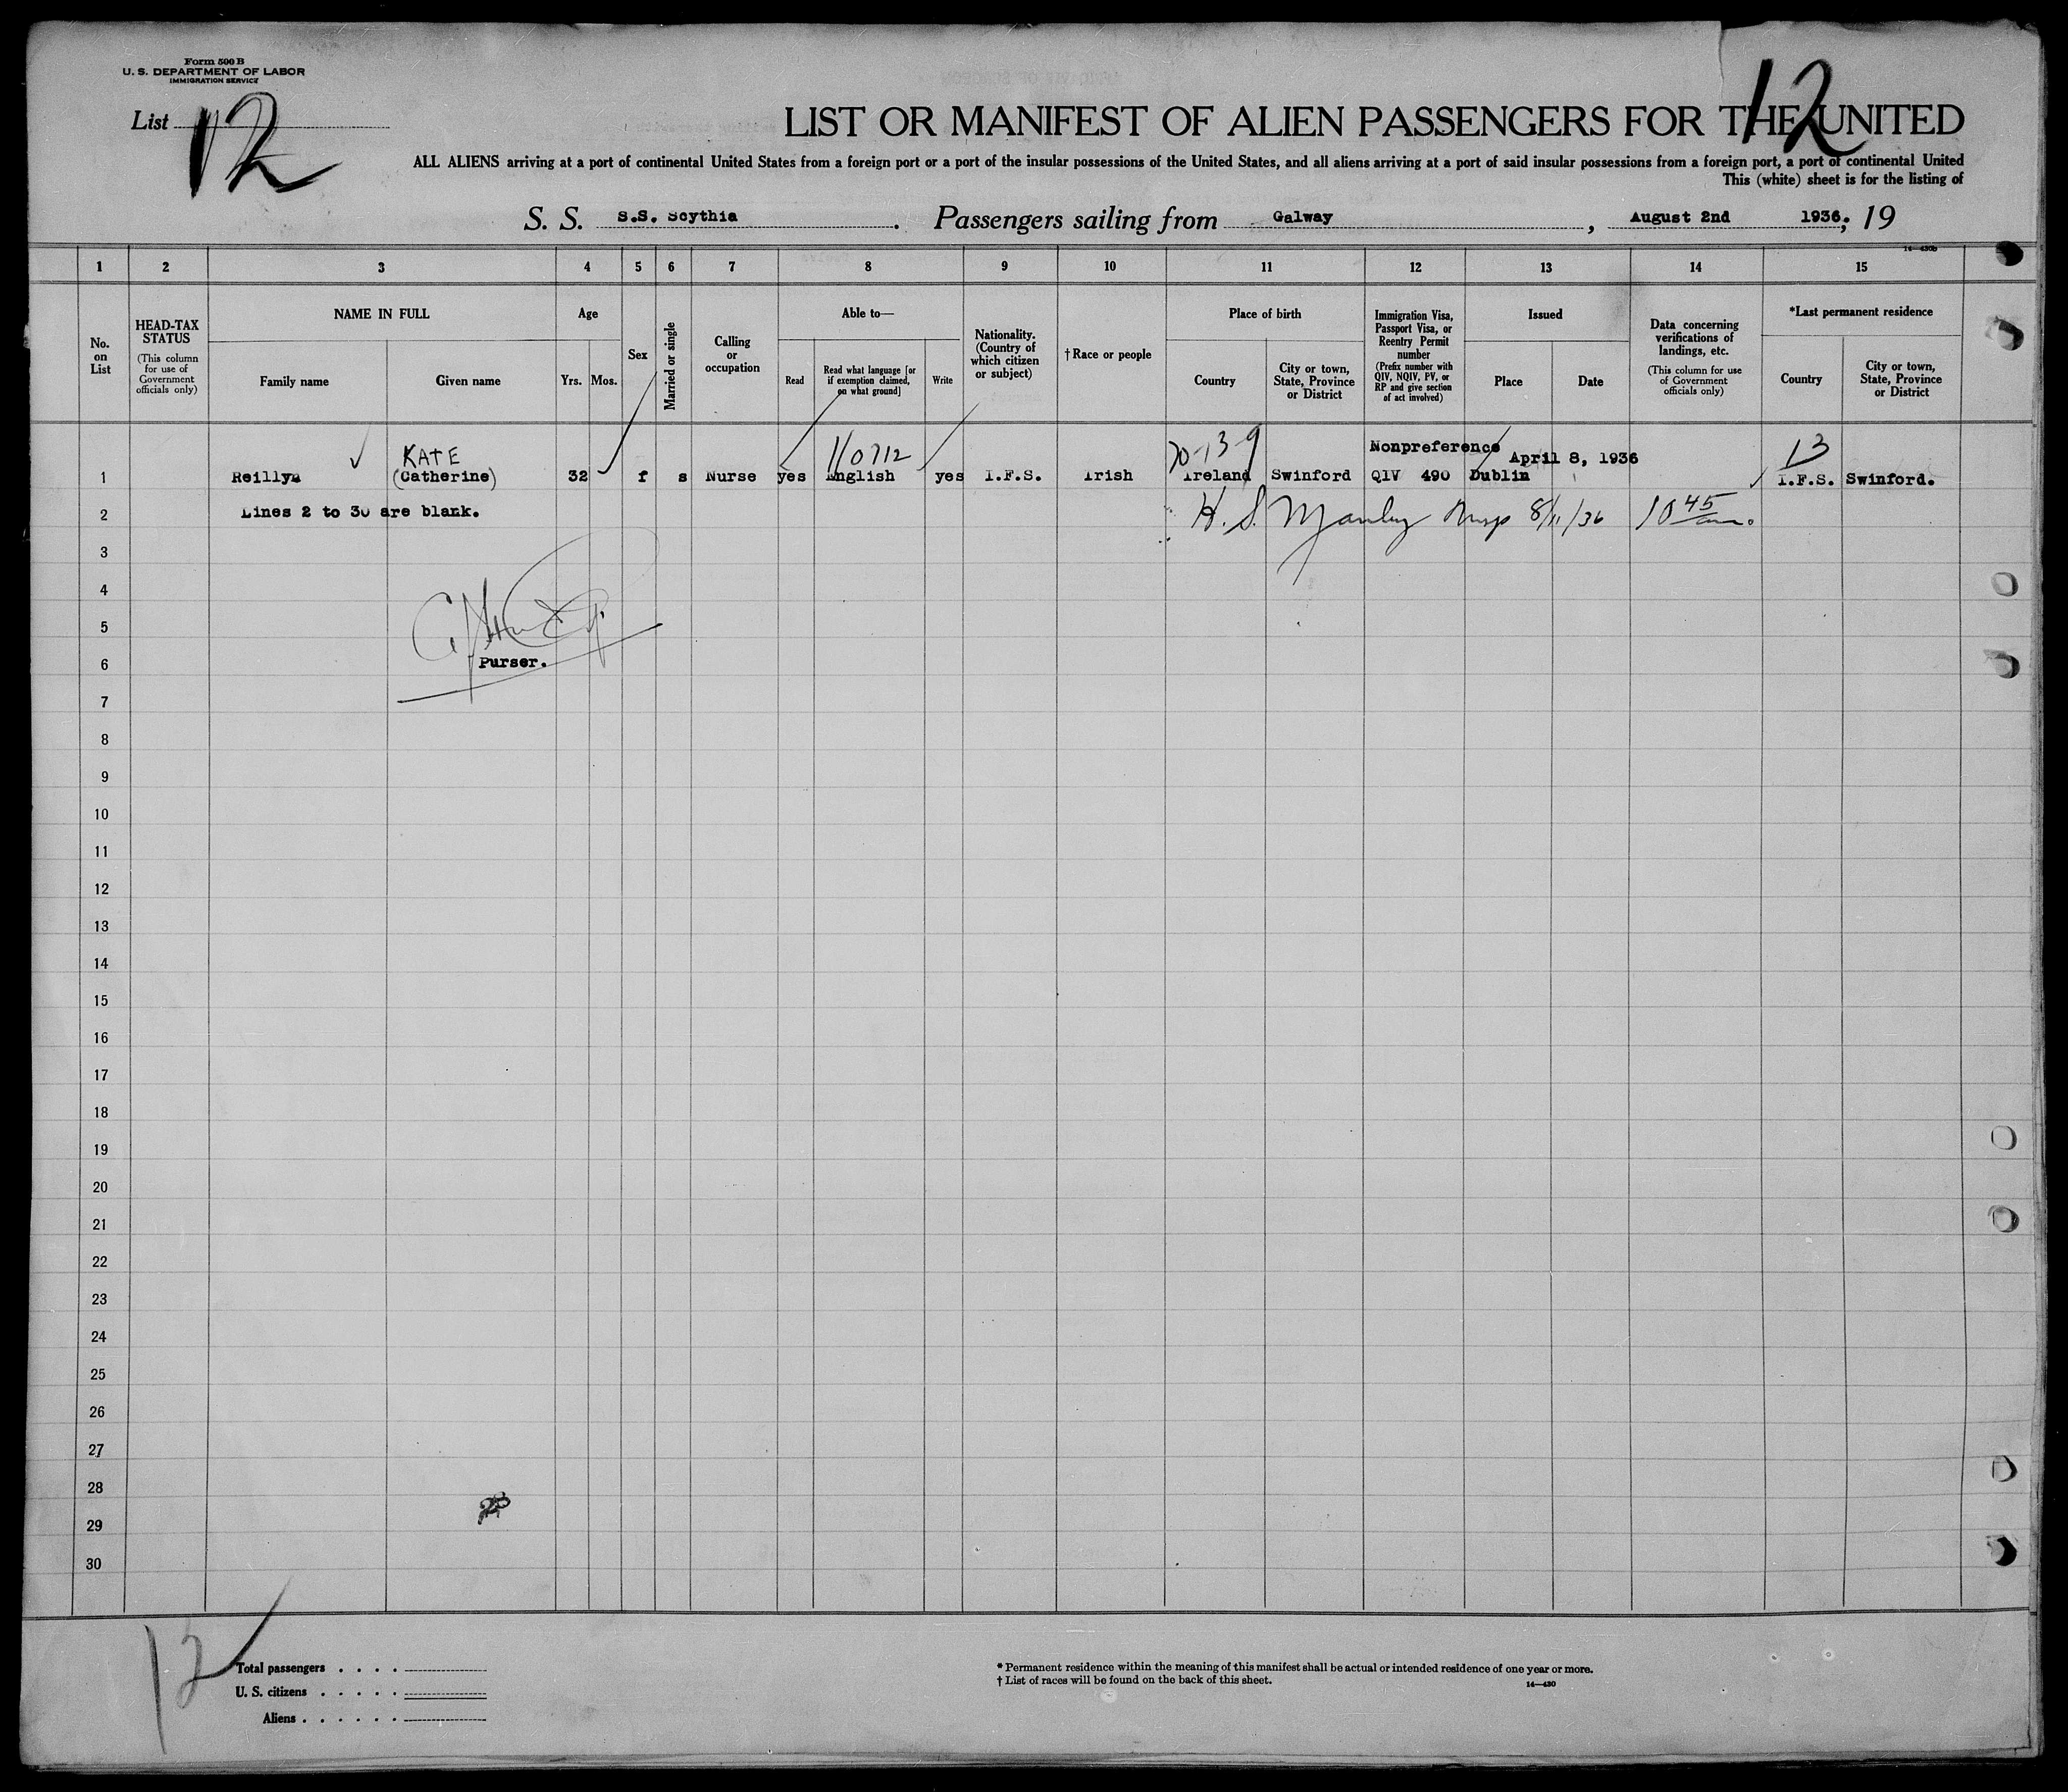 Form 500 B
U. S. DEPARTMENT OF LABOR
IMMIGRATION SERVICE
List 12
12
LIST OR MANIFEST OF ALIEN PASSENGERS FOR THE UNITED
ALL ALIENS arriving at a port of continental United States from a foreign port or a port of the insular possessions of the United States, and all aliens arriving at a port of said insular possessions from a foreign port, a port of continental United
This (white) sheet is for the listing of
S. S. S.S. Scythia. Passengers sailing from Galway, August 2nd 1936, 19
14—430b
1 2 3 4 5 6 7 8 9 10 11 12 13 14 15
No. on List
HEAD-TAX STATUS
(This column for use of Government officials only)
NAME IN FULL
Family name
Given name
Age
Yrs. Mos.
Sex
Married or single
Calling or occupation
Able to—
Read
Read what language [or if exemption claimed, on what ground]
Write
Nationality. (Country of which citizen or subject)
†Race or people
Place of birth
Country
City or town, State, Province or District
Immigration Visa, Passport Visa, or Reentry Permit number
(Prefix number with QIV, NQIV, PV, or RP and give section of act involved)
Issued
Place
Date
Data concerning verifications of landings, etc.
(This column for use of Government officials only)
*Last permanent residence
Country
City or town, State, Province or District
KATE 110712 Nonpreference 13
1 Reilly (Catherine) 32 f s Nurse yes English yes I.F.S. Irish Ireland Swinford QIV 490 Dublin April 8, 1936 I.F.S. Swinford.
2 Lines 2 to 30 are blank. H. S. Manley Insp 8/11/36 10 45 am.
3
4
5
6 Purser.
7
8
9
10
11
12
13
14
15
16
17
18
19
20
21
22
23
24
25
26
27
28
29
30
12
Total passengers . . . .
U. S. citizens . . . . .
Aliens . . . . . .
* Permanent residence within the meaning of this manifest shall be actual or intended residence of one year or more.
† List of races will be found on the back of this sheet.
14—430